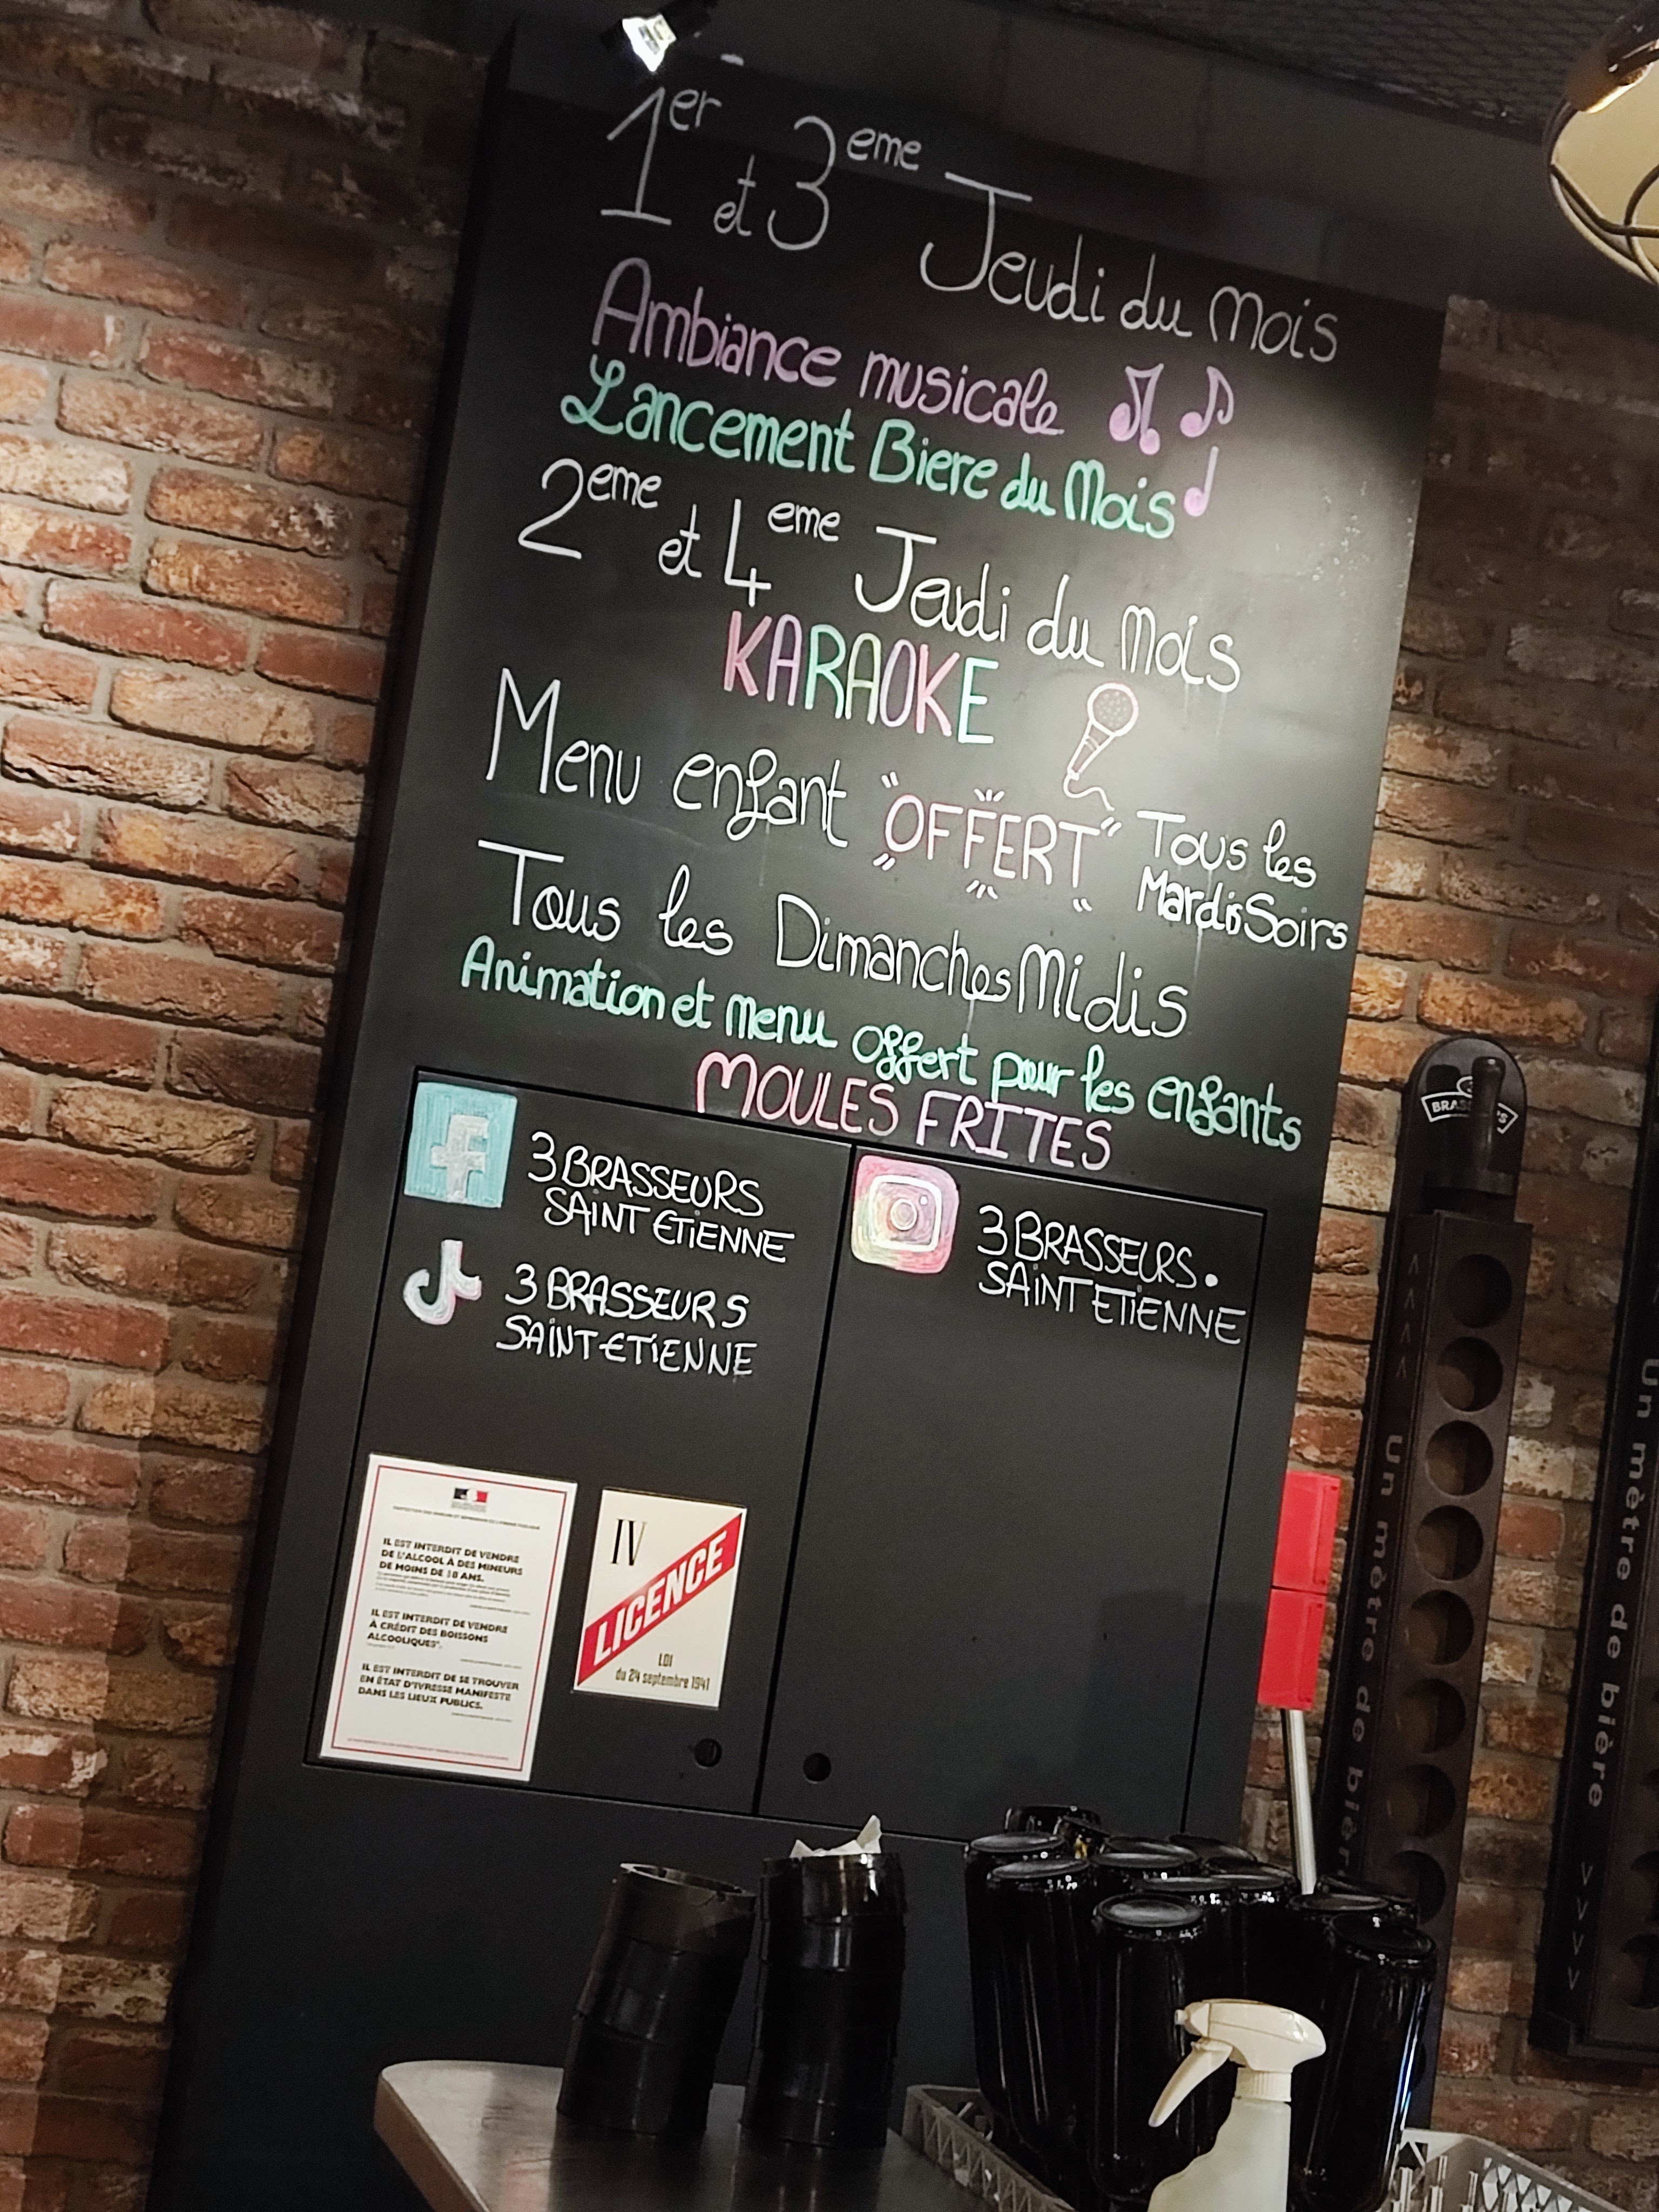 1er et 3eme Jeudi du Mois
Ambiance musicale
Lancement Biere du Mois
2eme et 4eme Jeudi du Mois
KARAOKE
Menu enfant "OFFERT" Tous les
Mardis Soirs
Tous les Dimanches Midis
Animation et menu offert pour les enfants
MOULES FRITES
3 BRASSEURS
SAINT ETIENNE
3 BRASSEURS
SAINT ETIENNE
3 BRASSEURS.
SAINT ETIENNE
IL EST INTERDIT DE VENDRE
DE L'ALCOOL À DES MINEURS
DE MOINS DE 18 ANS.
IL EST INTERDIT DE VENDRE
À CRÉDIT DES BOISSONS
ALCOOLIQUES".
IL EST INTERDIT DE SE TROUVER
EN ÉTAT D'IVRESSE MANIFESTE
DANS LES LIEUX PUBLICS.
IV
LICENCE
LOI
du 24 septembre 1941
3
BRASSEURS
Un mètre de bière
Un mètre de bière